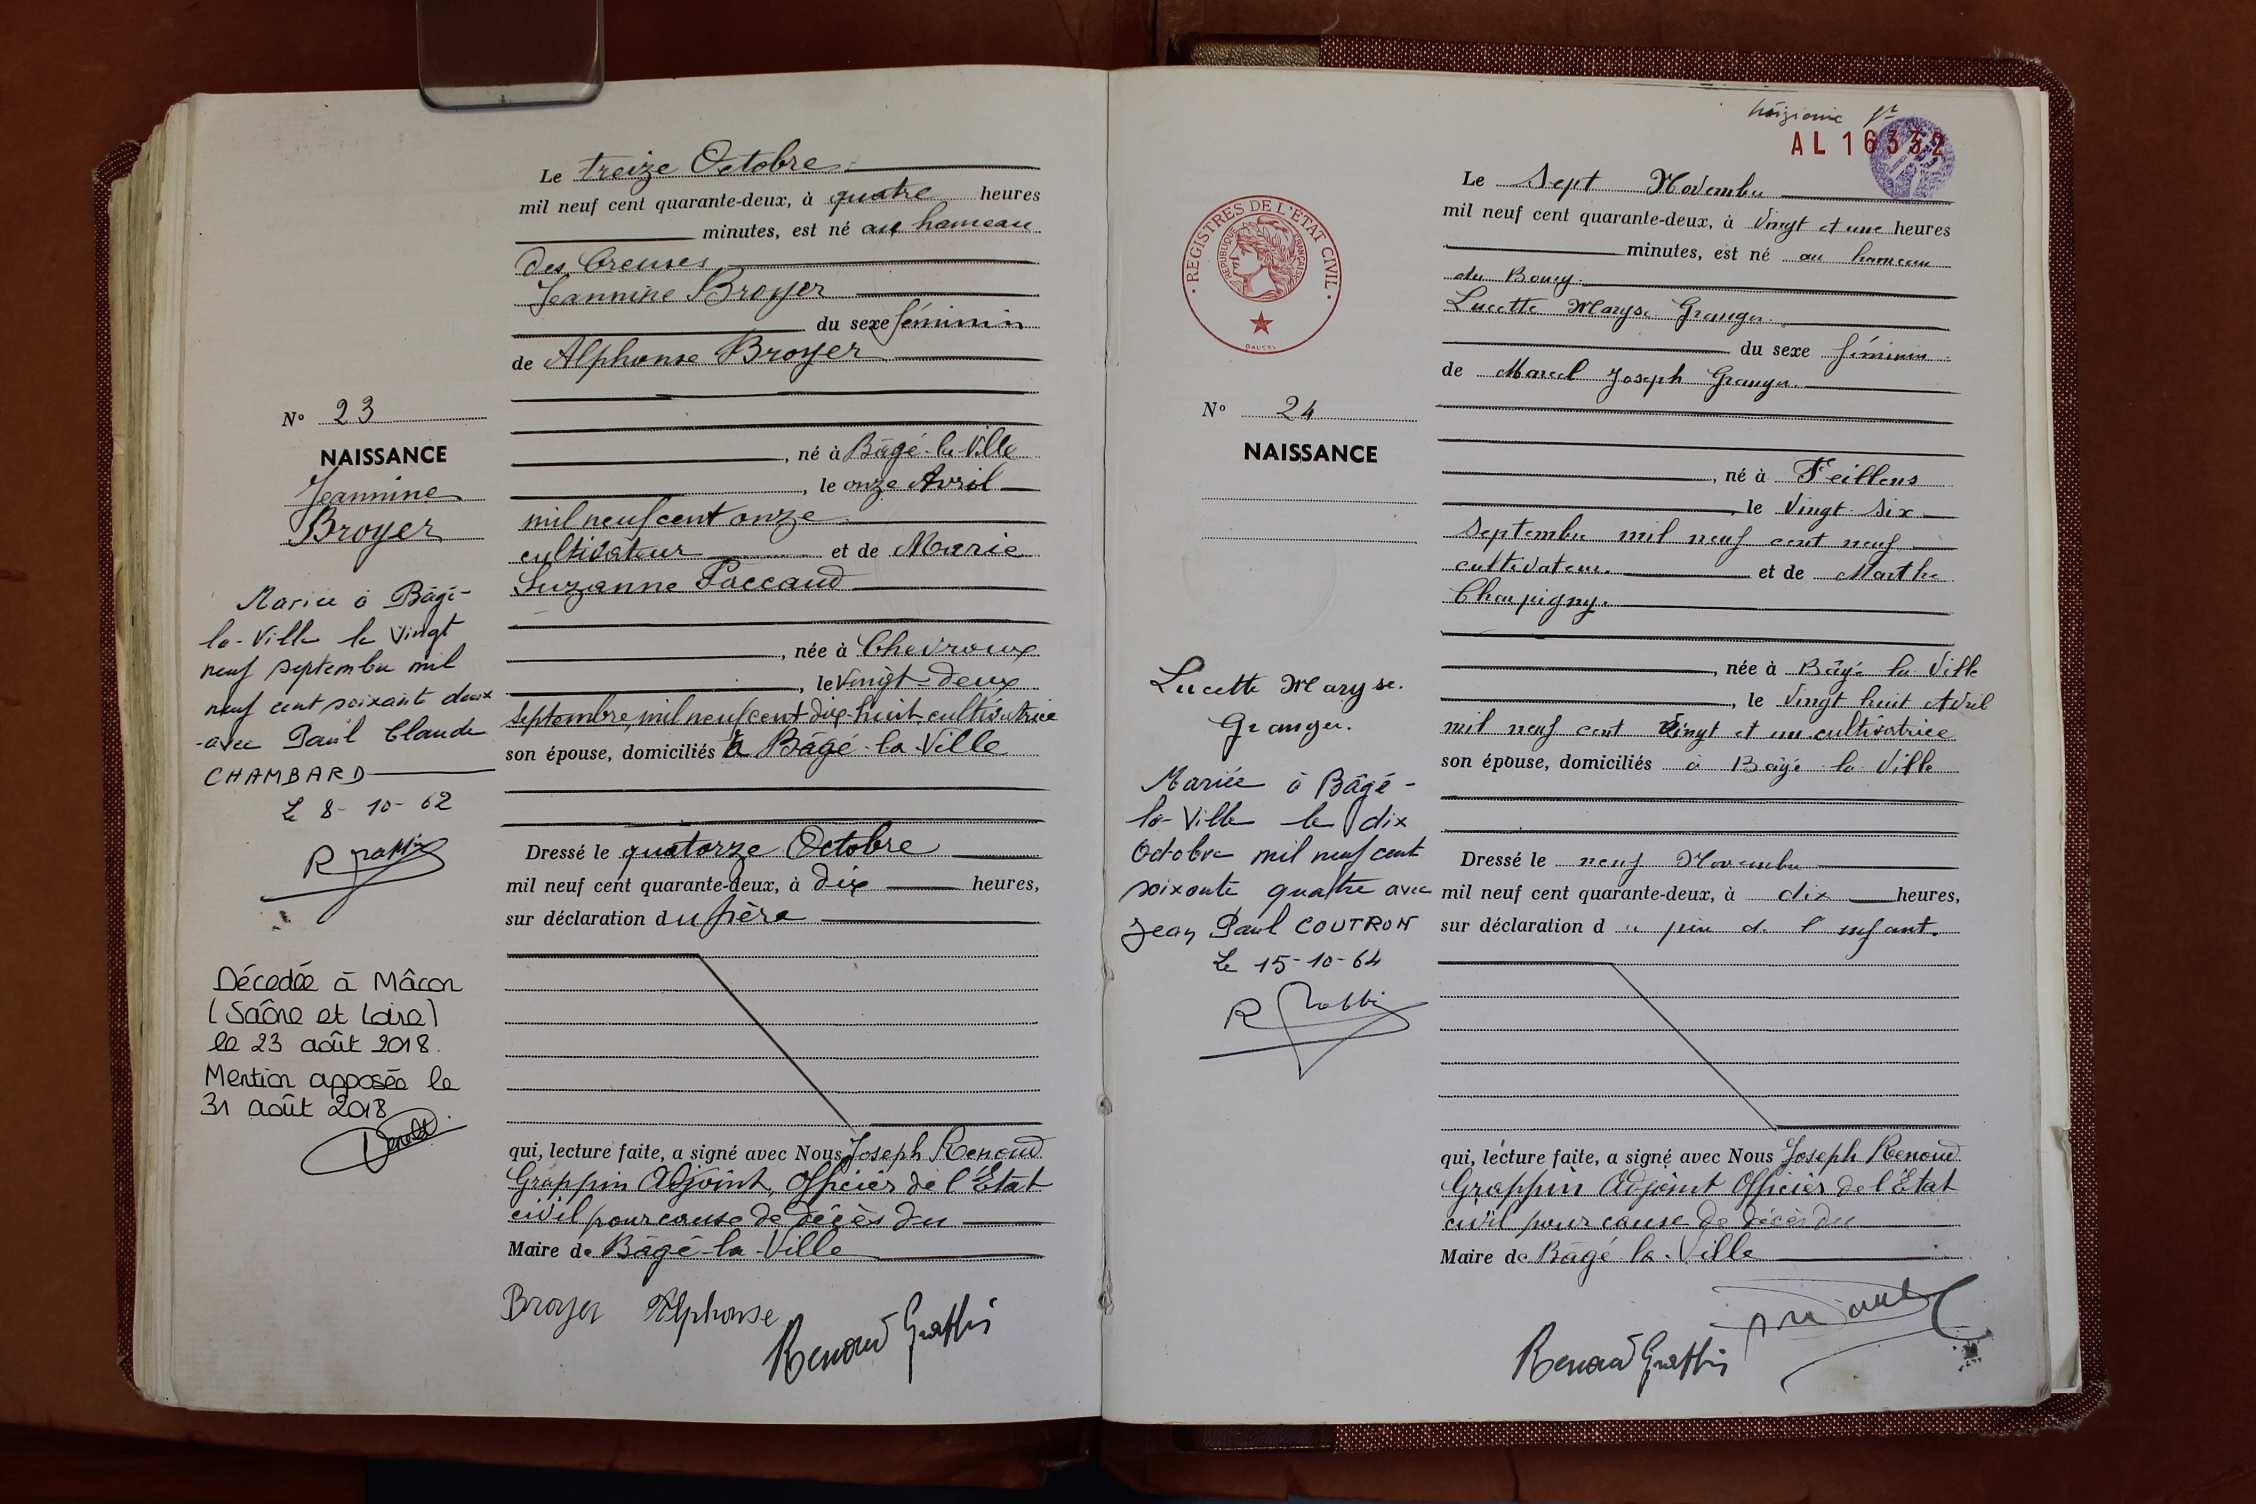 Le treize Octobre
mil neuf cent quarante-deux, à quatre heures
minutes, est né au hameau
des Creuses
Jeannine Broyer
du sexe féminin
de Alphonse Broyer
né à Bâgé-la-Ville
, le onze Avril
mil neuf cent onze
cultivateur et de Marie
Suzanne Paccaud
, née à Chevroux
, le vingt-deux
septembre mil neuf cent dix-huit cultivatrice
son épouse, domiciliés à Bâgé-la-Ville
Dressé le quatorze Octobre
mil neuf cent quarante-deux, à dix heures,
sur déclaration du père
qui, lecture faite, a signé avec Nous Joseph Renoud
Grappin Adjoint, Officier de l'Etat
civil pour cause de décès du
Maire de Bâgé-la-Ville
Broyer Alphonse
Renoud Grappin
No 23
NAISSANCE
Jeannine
Broyer
Mariée à Bâgé-
la-Ville le vingt
neuf septembre mil
neuf cent soixante deux
avec Paul Claude
CHAMBARD
Le 8-10-62
R Grappin
Décedée à Mâcon
(Saône et Loire)
le 23 août 2018.
Mention apposée le
31 août 2018
AL 16332
REGISTRES DE L'ETAT CIVIL
REPUBLIQUE FRANÇAISE
Le sept Novembre
mil neuf cent quarante-deux, à vingt et une heures
minutes, est né au hameau
du Bourg
Lucette Maryse Granger.
du sexe féminin
de Marcel Joseph Granger.
, né à Feillens
, le vingt-six
septembre mil neuf cent neuf
cultivateur. et de Marthe
Champigny.
, née à Bâgé la Ville
, le vingt huit Avril
mil neuf cent vingt et un cultivatrice
son épouse, domiciliés à Bâgé la Ville
Dressé le neuf Novembre
mil neuf cent quarante-deux, à dix heures,
sur déclaration du père de l'enfant.
qui, lecture faite, a signé avec Nous Joseph Renoud
Grappin Adjoint Officier de l'Etat
civil pour cause de décès du
Maire de Bâgé-la-Ville
Renoud Grappin
No 24
NAISSANCE
Lucette Maryse.
Granger.
Mariée à Bâgé-
la-Ville le dix
Octobre mil neuf cent
soixante quatre avec
Jean Paul COUTRON
Le 15-10-64
R Grappin